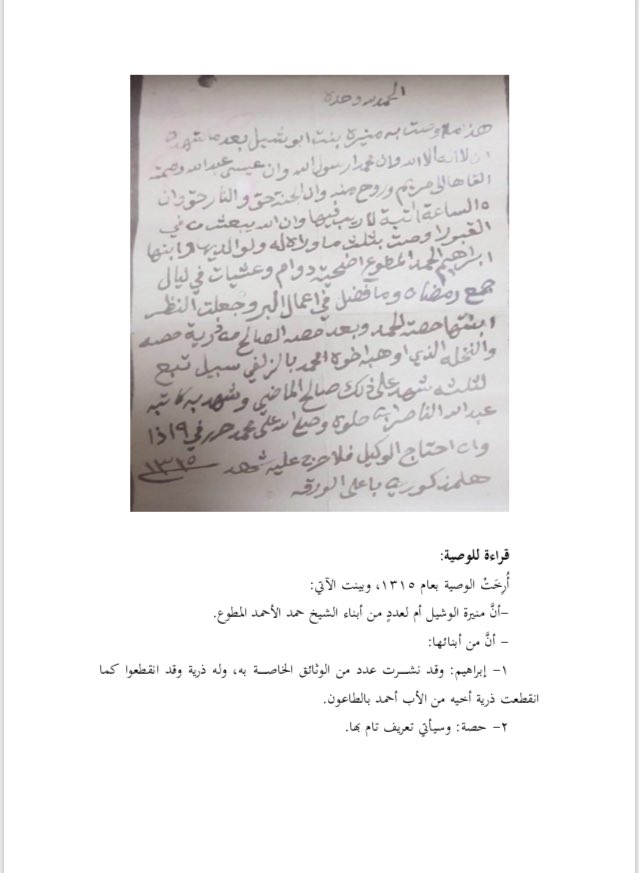 الحمد لله وحده
هذا ما وصت به منيره بنت ابو شيل بعد ما شهدت
ان لا اله الا الله وان محمد ارسول الله وان عيسى عبدالله وكلمته
القاها الى مريم وروح منه وان الجنة حق والنار حق وان
الساعة اتية لا ريب فيها وان الله يبعث من في
القبور اوصت بثلث ما وراه له ولوالديها وابنها
ابراهيم الحمد المطوع اضحية دوام وعشيات في ليال
جمع رمضان وما فضل في اعمال البر وجعلت النظر
ابنتها حصة الحمد وبعد حصه الصالح من ذرية حصه
والنخله الذي اوهبه اخوه الحمد بالزلفي سبيل تبع
لثلثه شهد على ذلك صالح الماضي وشهد به كاتبه
عبدالله الناصر وصلى الله على محمد حرر في ١٩ ذا
وان احتاج الوكيل فلا حرج عليه شهد ١٣١٥
هلمذكورين باعلى الورقه
قراءة للوصية:
أُرِخَتْ الوصية بعام ١٣١٥، وبينت الآتي:
-أنَّ منيرة الوشيل أم لعددٍ من أبناء الشيخ حمد الأحمد المطوع.
- أنَّ من أبنائها:
١- إبراهيم: وقد نشرت عدد من الوثائق الخاصة به، وله ذرية وقد انقطعوا كما
انقطعت ذرية أخيه من الأب أحمد بالطاعون.
٢- حصة: وسيأتي تعريف تام بها.